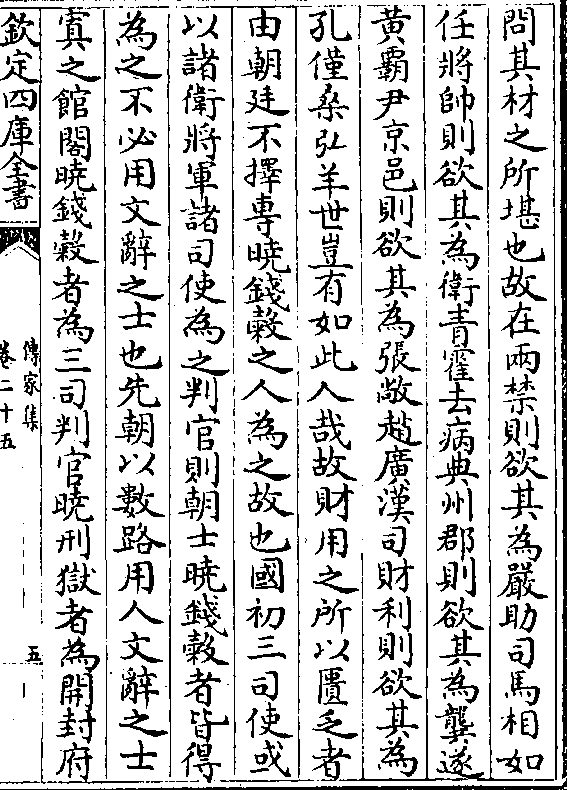 問其材之所堪也故在兩禁則欲其為嚴助司馬相如
任將帥則欲其為衛青霍去病典州郡則欲其為龔遂
黃霸尹京邑則欲其為張敞趙廣漢司財利則欲其為
孔僅桑弘羊世豈有如此人哉故財用之所以匱乏者
由朝廷不擇專曉錢穀之人為之故也國初三司使或
以諸衛將軍諸司使為之判官則朝士曉錢穀者皆得
為之不必用文辭之士也先朝以數路用人文辭之士
寘之館閣曉錢穀者為三司判官曉刑獄者為開封府
欽定四庫全書
傳家集
卷二十五
五